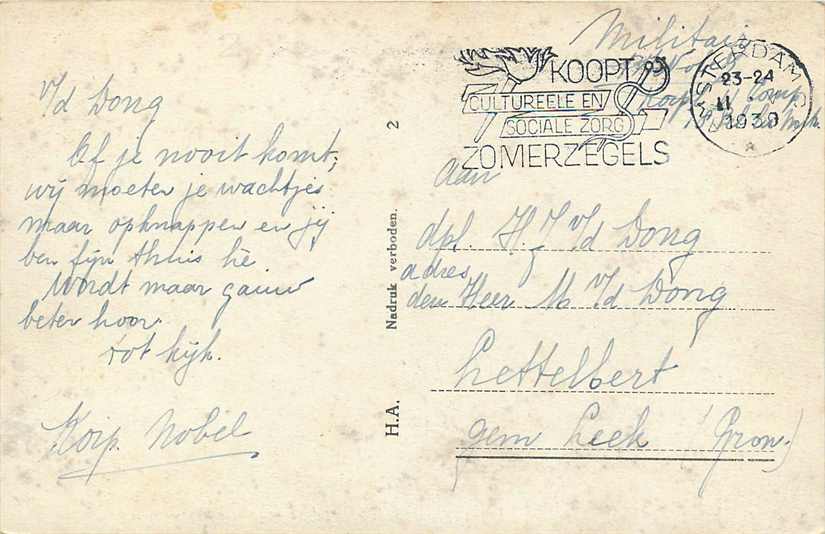 v/d Dong
Of je nooit komt,
wij moeten je wachtjes
maar opknappen en jij
ben fijn thuis hè
Wordt maar gauw
beter hoor.
tot kijk.
Korp. Nobel
H.A. Nadruk verboden. 2
Militair
KOOPT
CULTUREELE EN
SOCIALE ZORG
ZOMERZEGELS
AMSTERDAM
23-24
1939
A
Aan
dpl. H. J. v/d Dong
adres
den Heer M v/d Dong
Lettelbert
gem Leek (Gron.)